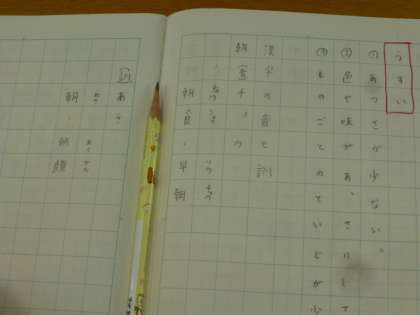 うすい
① あつさが少ない。
② 色や味があっさりして
③ ものごとのていどが少
漢字の音と訓
朝 音 チョウ
朝食、早朝
訓 あさ
朝 あさ
朝顔 あさがお